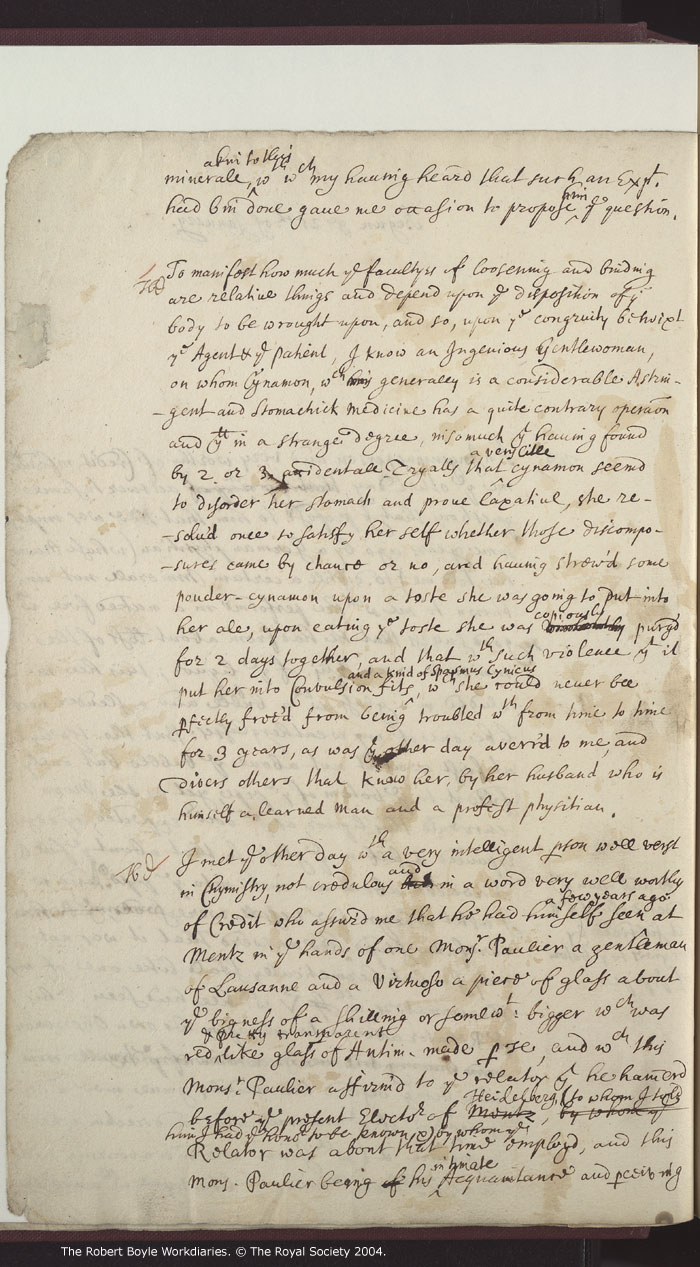 akin to this
minerale, w wch my hauing heard that such an Expt.
had bin done gaue me occasion to propose him ye question.
To manifest how much ye facultys of loosening and binding
are relatiue things and depend upon ye disposition of ye
body to be wrought upon, and so, upon ye congruity betwixt
ye Agent & ye patient, I know an Ingenious Gentlewoman,
on whom Cynamon, wch generaley is a considerable Astrin-
-gent and stomachick medicine has a quite contrary operaon
and yt in a strange degree, insomuch yt hauing found
by 2. or 3. accidentale Tryalls that a very little cynamon seemd
to disorder her stomach and proue Laxatiue, she re-
-solu'd once to satisfy her self whether those discompo-
-sures came by chance or no, and hauing strew'd some
pouder-cynamon upon a toste she was going to put into
her ale, upon eating ye toste she was copiously purg'd
for 2 days together, and that wth such violence yt it
put her into Convulsion fits, and a kind of Spasmus Cynicus wch she could never bee
pfectly free'd from being troubled wth from time to time
for 3 years, as was ye other day averr'd to me, and
divers others that know her, by her husband who is
himself a learned man and a profest physitian.
I met ye other day wth a very intelligent pson well verst
in Chymistry, not credulous and in a word very well worthy
of Credit who assur'd me that he had himself a few years ago seen at
Mentz in ye hands of one Monsr. Paulier a gentleman
of Lausanne and a Virtuoso a piece of glass about
ye bigness of a shilling or somewt: bigger wch was
& pretty transparent
red, like glass of Antim. made p se, and wch this
Monsr. Paulier affirm'd to ye relator yt he hamerd
before ye present Electr of Heidelberg, (to whom I tooke
him, I had ye honr to be known) by whom ye
Relator was about that time employd, and this
Mons. Paulier being of his intimate Acquaintance and pceiving
The Robert Boyle Workdiaries. © The Royal Society 2004.